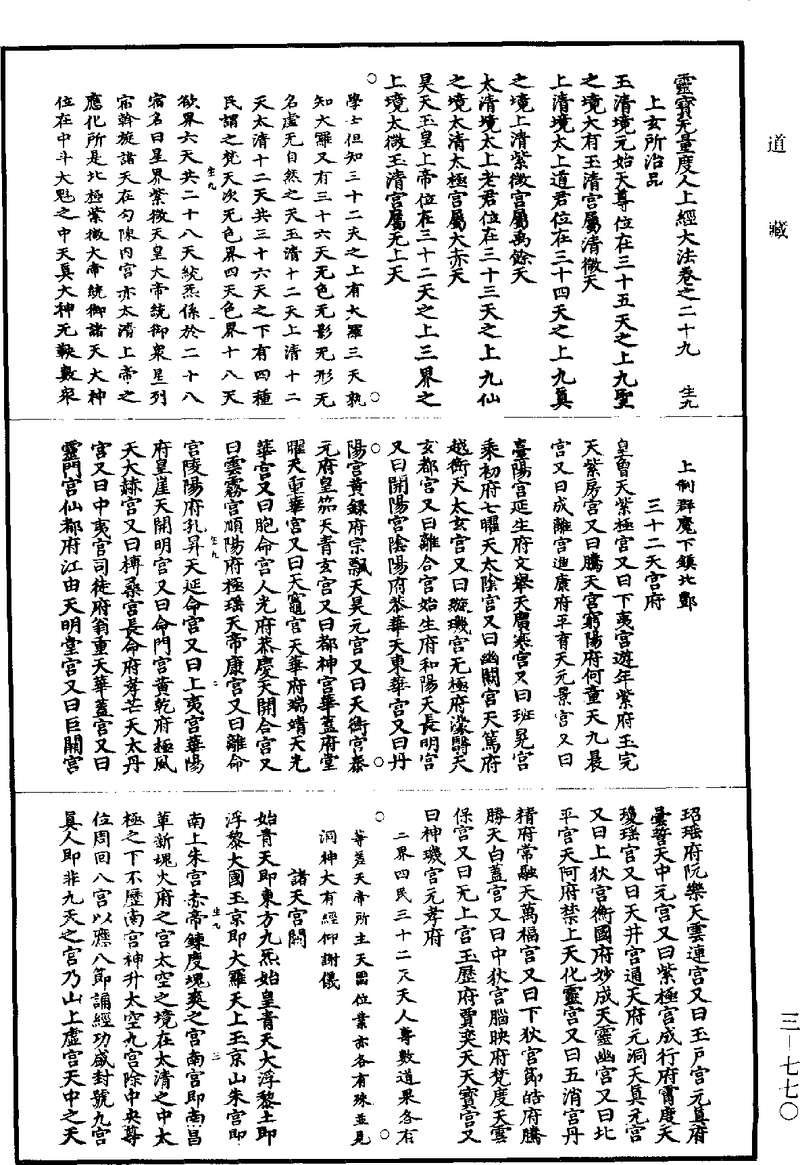 道藏
靈寶无量度人上經大法卷之二十九　生九
上玄所治品
玉清境元始天尊位在三十五天之上九聖
之境大有玉清宮屬清微天
上清境太上道君位在三十四天之上九真
之境上清紫微宮屬禹餘天
太清境太上老君位在三十三天之上九仙
之境太清太極宮屬大赤天
昊天玉皇上帝位在三十二天之上三界之
上境太微玉清宮屬无上天
學士但知三十二天之上有大羅三天孰
知大羅又有三十六天无色无影无形无
名虛无自然之天玉清十二天上清十二
天太清十二天共三十六天之下有四種
民謂之梵天次无色界四天色界十八天
生九　一
欲界六天共二十八天統炁係於二十八
宿名曰星界紫微天皇大帝統御衆星列
宿斡旋諸天在勾陳內宮亦太清上帝之
應化所是北極紫微大帝統御諸天大神
位在中斗大魁之中天真大神元鞅數衆
上制群魔下鎮北酆
三十二天宮府
皇曾天紫極宮又曰下夷宮遊年紫府玉完
天紫房宮又曰騰天宮窮陽府何童天九晨
宮又曰成離宮進康府平育天元景宮又曰
臺陽宮延生府文舉天廣寒宮又曰班晃宮
乘初府七曜天太陰宮又曰幽關宮天篤府
越衡天太玄宮又曰璇璣宮无極府濛翳天
玄都宮又曰離合宮始生府和陽天長明宮
又曰開陽宮陰陽府恭華天東華宮又曰丹
陽宮黃錄府宗飄天昊元宮又曰天衡宮泰
元府皇笳天青玄宮又曰都神宮華蓋府堂
曜天重華宮又曰天竈宮天華府端靖天光
華宮又曰胞命宮人光府恭慶天開合宮又
曰雲霧宮順陽府極瑤天帝康宮又曰離命
生九　二
宮陵陽府孔昇天延命宮又曰上夷宮華陽
府皇崖天開明宮又曰命門宮黃乾府極風
天大赫宮又曰榑桑宮長命府孝芒天太丹
宮又曰中夷宮司徒府翁重天華蓋宮又曰
靈門宮仙都府江由天明堂宮又曰巨關宮
玿瑤府阮樂天雲連宮又曰玉戶宮元真府
曇誓天中元宮又曰紫極宮成行府霄度天
瓊瑤宮又曰天井宮通天府元洞天真元宮
又曰上狄宮衡國府妙成天靈幽宮又曰北
平宮天阿府禁上天化靈宮又曰五消宮丹
精府常融天萬福宮又曰下狄宮節皓府騰
勝天白蓋宮又曰中狄宮腦映府梵度天雲
保宮又曰无上宮玉歷府賈奕天天寶宮又
曰神璣宮元孝府
二界四民三十二天天人專數道果各有
等差天帝所主天罡位業亦各有殊並見
洞神大有經仰謝儀
諸天宮闕
始青天即東方九炁始皇青天大浮黎土即
浮黎大國玉京即大羅天上玉京山朱宮即
南上朱宮赤帝鍊度魂爽之宮南宮即南昌
生九　三
革新塊火府之宮太空之境在太清之中太
極之下不歷南宮神升太空九宮除中央尊
位周回八宮以應八節誦經功盛封號九宮
真人即非九天之宮乃山上虛宮天中之天
三—七七〇